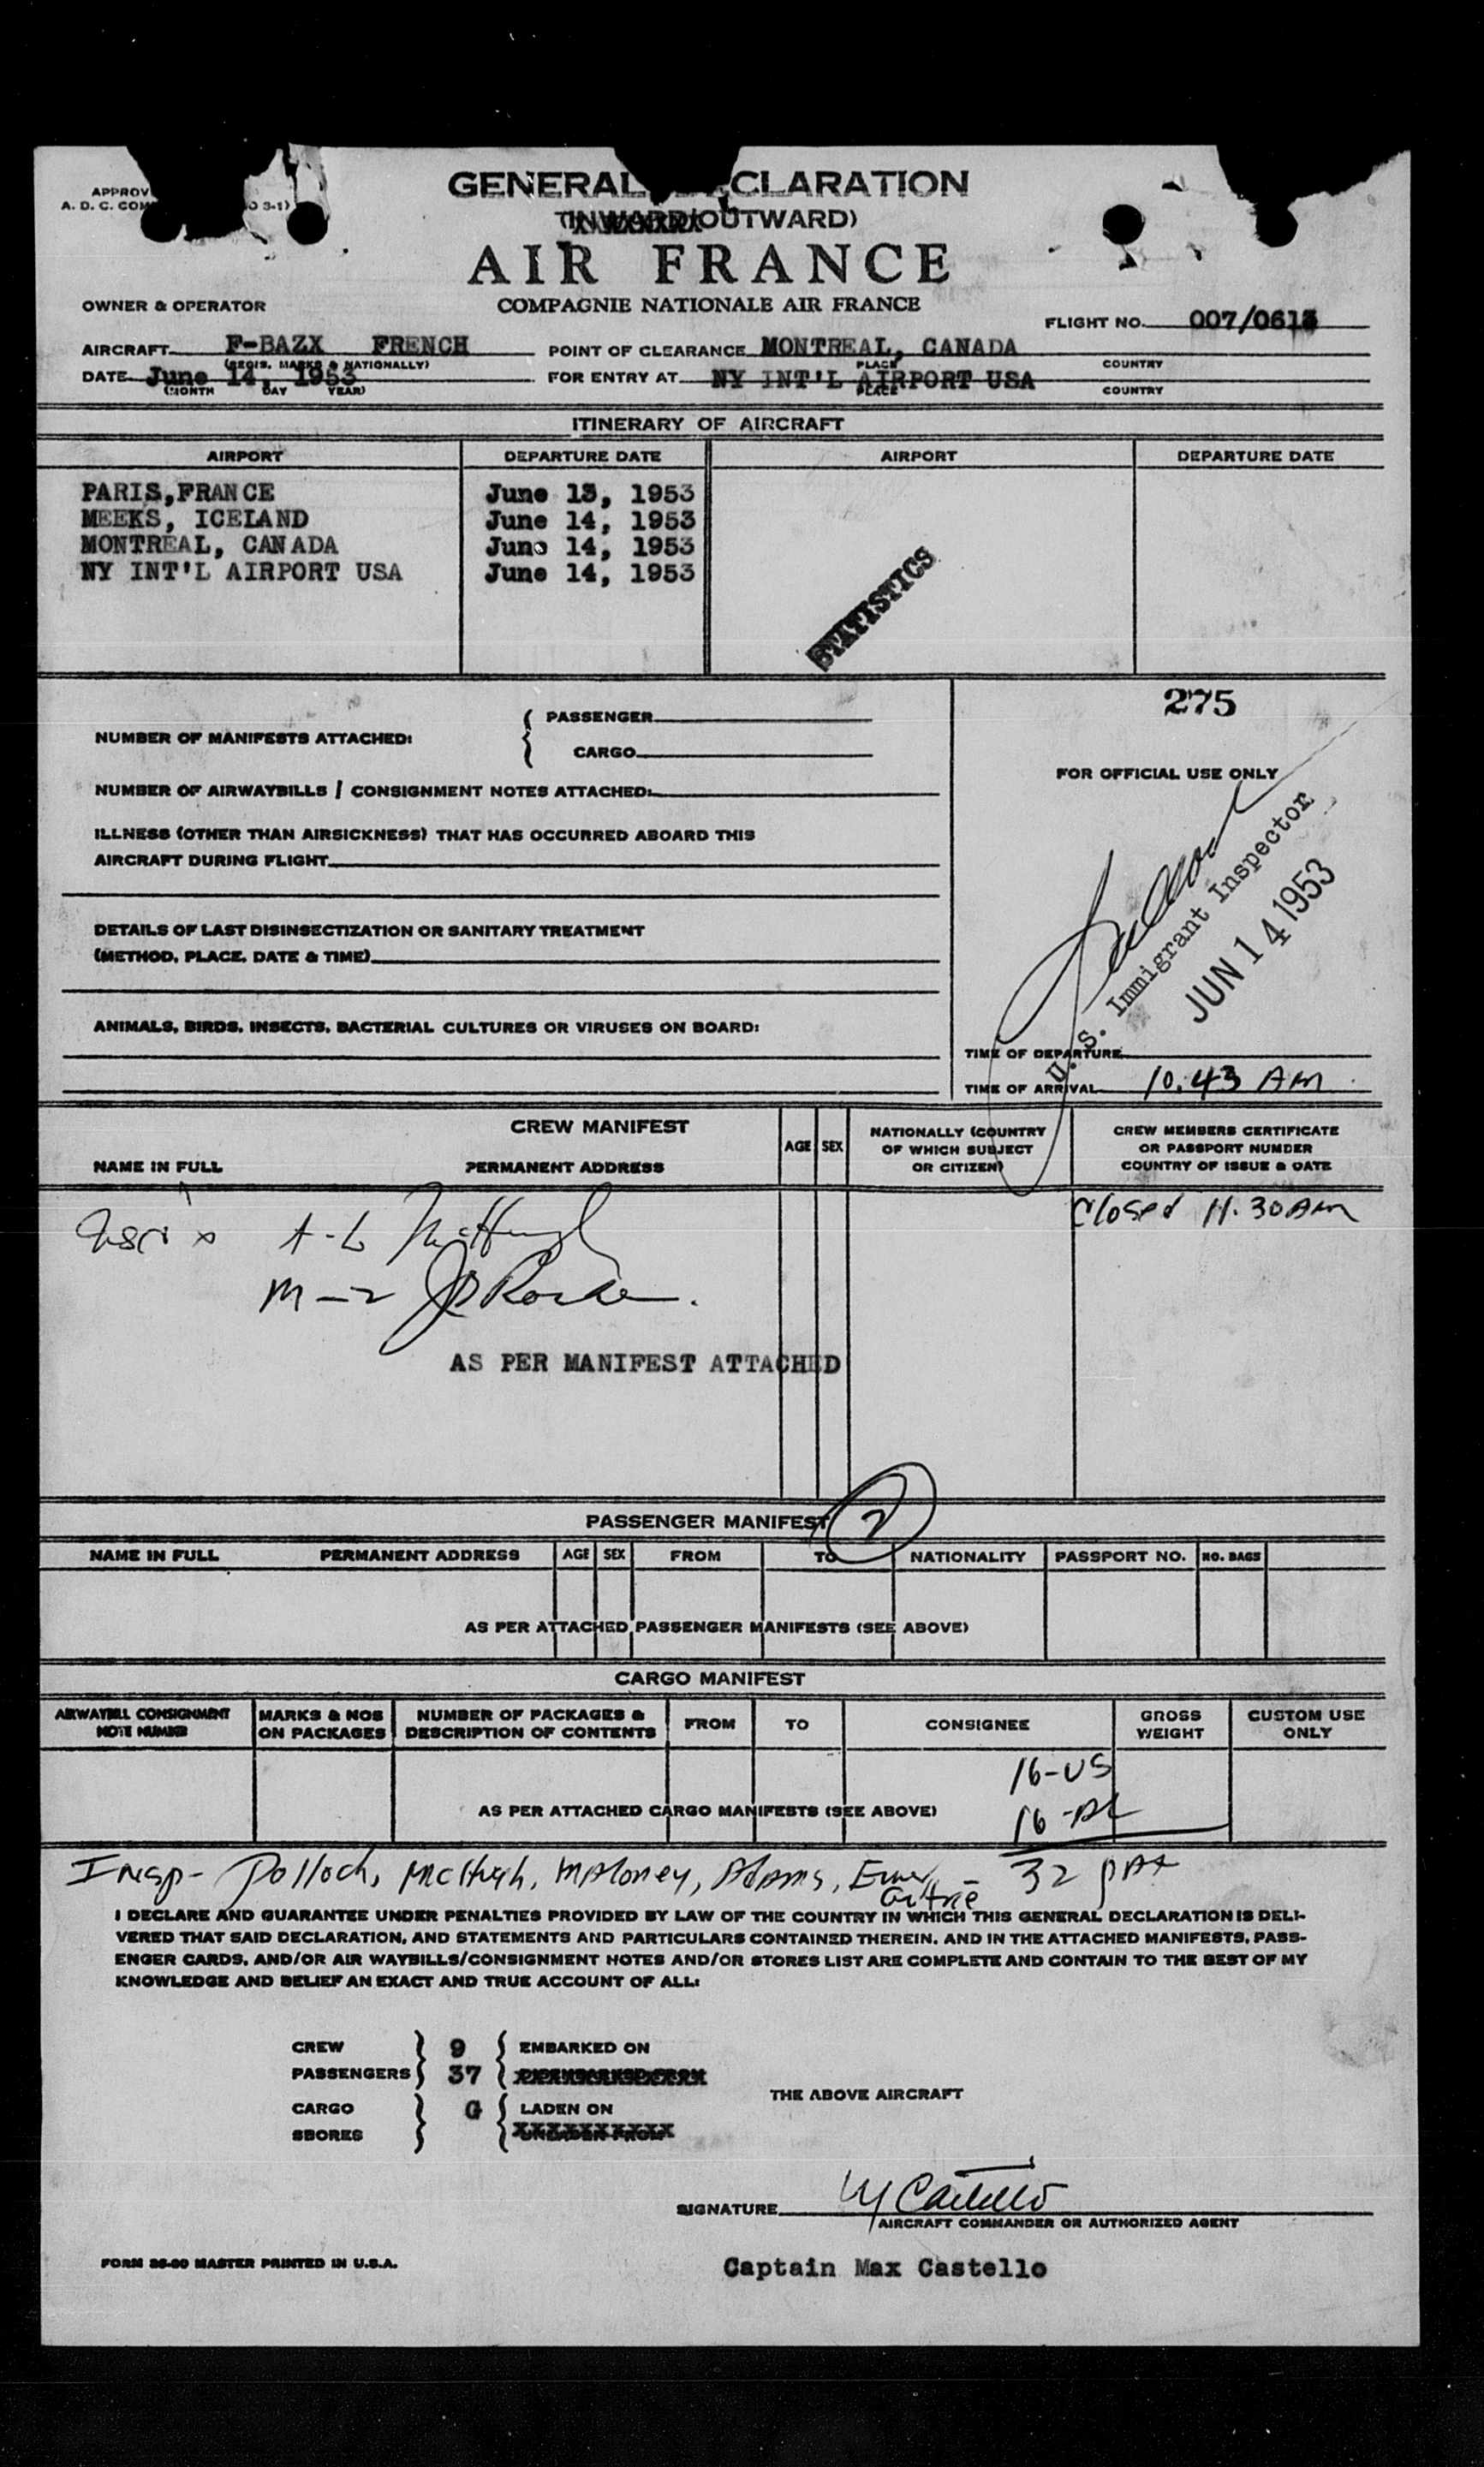 GENERAL CLARATION
OUTWARD)
AIR FRANCE
COMPAGNIE NATIONALE AIR FRANCE
OWNER & OPERATOR
FLIGHT NO. 007/0613
AIRCRAFT F-BAZX FRENCH POINT OF CLEARANCE MONTREAL, CANADA
(REGIS. MARKS & NATIONALLY) PLACE COUNTRY
DATE June 14, 1953 FOR ENTRY AT NY INT'L AIRPORT USA
(MONTH DAY YEAR) PLACE COUNTRY
ITINERARY OF AIRCRAFT
AIRPORT DEPARTURE DATE AIRPORT DEPARTURE DATE
PARIS,FRANCE June 13, 1953
MEEKS, ICELAND June 14, 1953
MONTREAL, CANADA June 14, 1953
NY INT'L AIRPORT USA June 14, 1953
STATISTICS
275
NUMBER OF MANIFESTS ATTACHED: { PASSENGER
CARGO
FOR OFFICIAL USE ONLY
NUMBER OF AIRWAYBILLS / CONSIGNMENT NOTES ATTACHED:
ILLNESS (OTHER THAN AIRSICKNESS) THAT HAS OCCURRED ABOARD THIS
AIRCRAFT DURING FLIGHT
DETAILS OF LAST DISINSECTIZATION OR SANITARY TREATMENT
(METHOD, PLACE, DATE & TIME)
ANIMALS, BIRDS, INSECTS, BACTERIAL CULTURES OR VIRUSES ON BOARD:
U. S. Immigrant Inspector
JUN 14 1953
TIME OF DEPARTURE
TIME OF ARRIVAL 10.43 AM
CREW MANIFEST
NAME IN FULL PERMANENT ADDRESS AGE SEX NATIONALLY (COUNTRY OF WHICH SUBJECT OR CITIZEN) CREW MEMBERS CERTIFICATE OR PASSPORT NUMBER COUNTRY OF ISSUE & DATE
Closed 11.30 AM
M-2
AS PER MANIFEST ATTACHED
PASSENGER MANIFEST 2
NAME IN FULL PERMANENT ADDRESS AGE SEX FROM TO NATIONALITY PASSPORT NO. NO. BAGS
AS PER ATTACHED PASSENGER MANIFESTS (SEE ABOVE)
CARGO MANIFEST
AIRWAYBILL CONSIGNMENT NOTE NUMBER MARKS & NOS ON PACKAGES NUMBER OF PACKAGES & DESCRIPTION OF CONTENTS FROM TO CONSIGNEE GROSS WEIGHT CUSTOM USE ONLY
16-US
AS PER ATTACHED CARGO MANIFESTS (SEE ABOVE) 16-AL
Insp- Polloch, McHugh, Maloney, Adams, 32
I DECLARE AND GUARANTEE UNDER PENALTIES PROVIDED BY LAW OF THE COUNTRY IN WHICH THIS GENERAL DECLARATION IS DELI-
VERED THAT SAID DECLARATION, AND STATEMENTS AND PARTICULARS CONTAINED THEREIN, AND IN THE ATTACHED MANIFESTS, PASS-
ENGER CARDS, AND/OR AIR WAYBILLS/CONSIGNMENT NOTES AND/OR STORES LIST ARE COMPLETE AND CONTAIN TO THE BEST OF MY
KNOWLEDGE AND BELIEF AN EXACT AND TRUE ACCOUNT OF ALL:
CREW 9 EMBARKED ON
PASSENGERS 37
THE ABOVE AIRCRAFT
CARGO G LADEN ON
SBORES XXXXXXXXXX
SIGNATURE M Castello
AIRCRAFT COMMANDER OR AUTHORIZED AGENT
FORM 26-00 MASTER PRINTED IN U.S.A.
Captain Max Castello